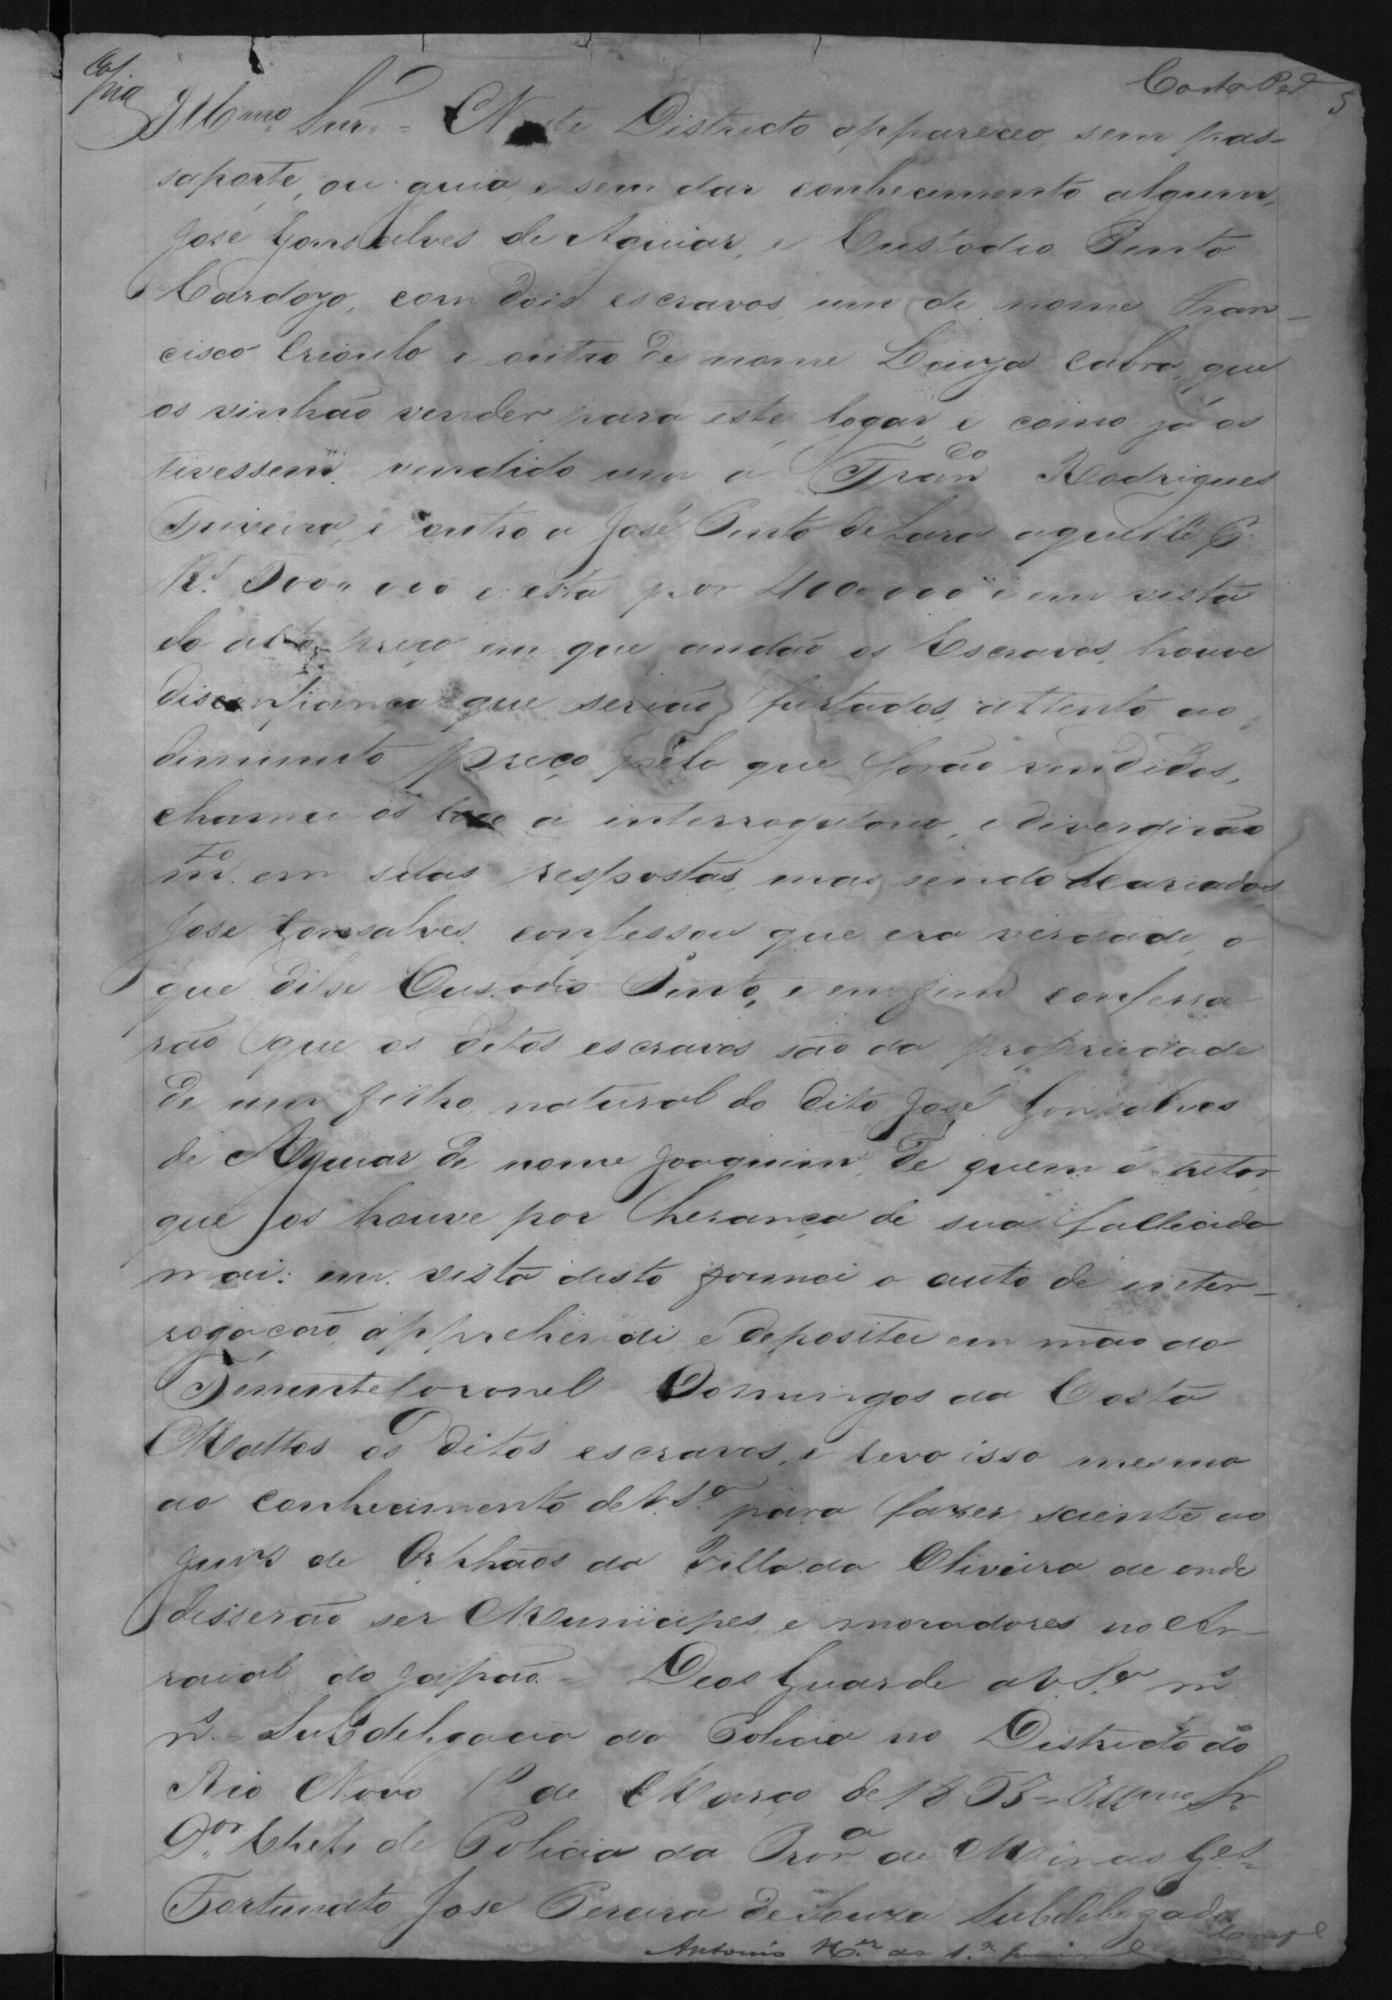 Copia
Costa Ped 5
Illmo Snr. = Neste Districto appareceo sem pas-
saporte, ou guia, e sem dar conhecimento algum,
José Gonsalves de Aguiar, e Custodio Pinto
Cardozo, com dois escravos, um de nome Fran-
cisco Crioulo e outro de nome Luiza Cabra, que
os vinhão vender para este logar, e como já os
tivessem vendido um a Franco Rodrigues
Teixeira, e outro a José Pinto de Lara aquelle P.
Rs. 500,,000 e esta por 400,000 e em vista
do alto preço em que andão os Escravos, houve
disconfiança que serião furtados, attento ao
diminuto preço pelo que forão vendidos,
chamei os logo a interrogatorio, e divergirão
mto. em suas respostas, mas sendo acariados,
José Gonsalves confessou que era verdade, o
que disse Custodio Pinto, e em fim confessa
rão que os ditos escravos são da propriedade
de um filho natural do dito José Gonsalves
de Aguiar de nome Joaquim, de quem é tutor,
que os houve por herança de sua fallecida
mai: em vista disto formei o auto de inter-
rogação, apprehendi e depositei em mão do
Tenente Coronel Domingos da Costa
Mattos os ditos escravos, e levo isso mesmo
ao conhecimento de V. Sa. para fazer sciente ao
Juiz de Orphãos da Villa da Oliveira, de onde
disserão ser Municipes, e moradores no Ar-
raial do Japão = Deos Guarde a V. Sa. ms.
as. = Subdelegacia da Policia no Districto do
Rio Novo 1º de Março de 1853 - Illmo Sr.
Dor. Chefe de Policia da Prova. de Minas Ges. =
Fortunato José Pereira de Souza Subdelegado
Antonio